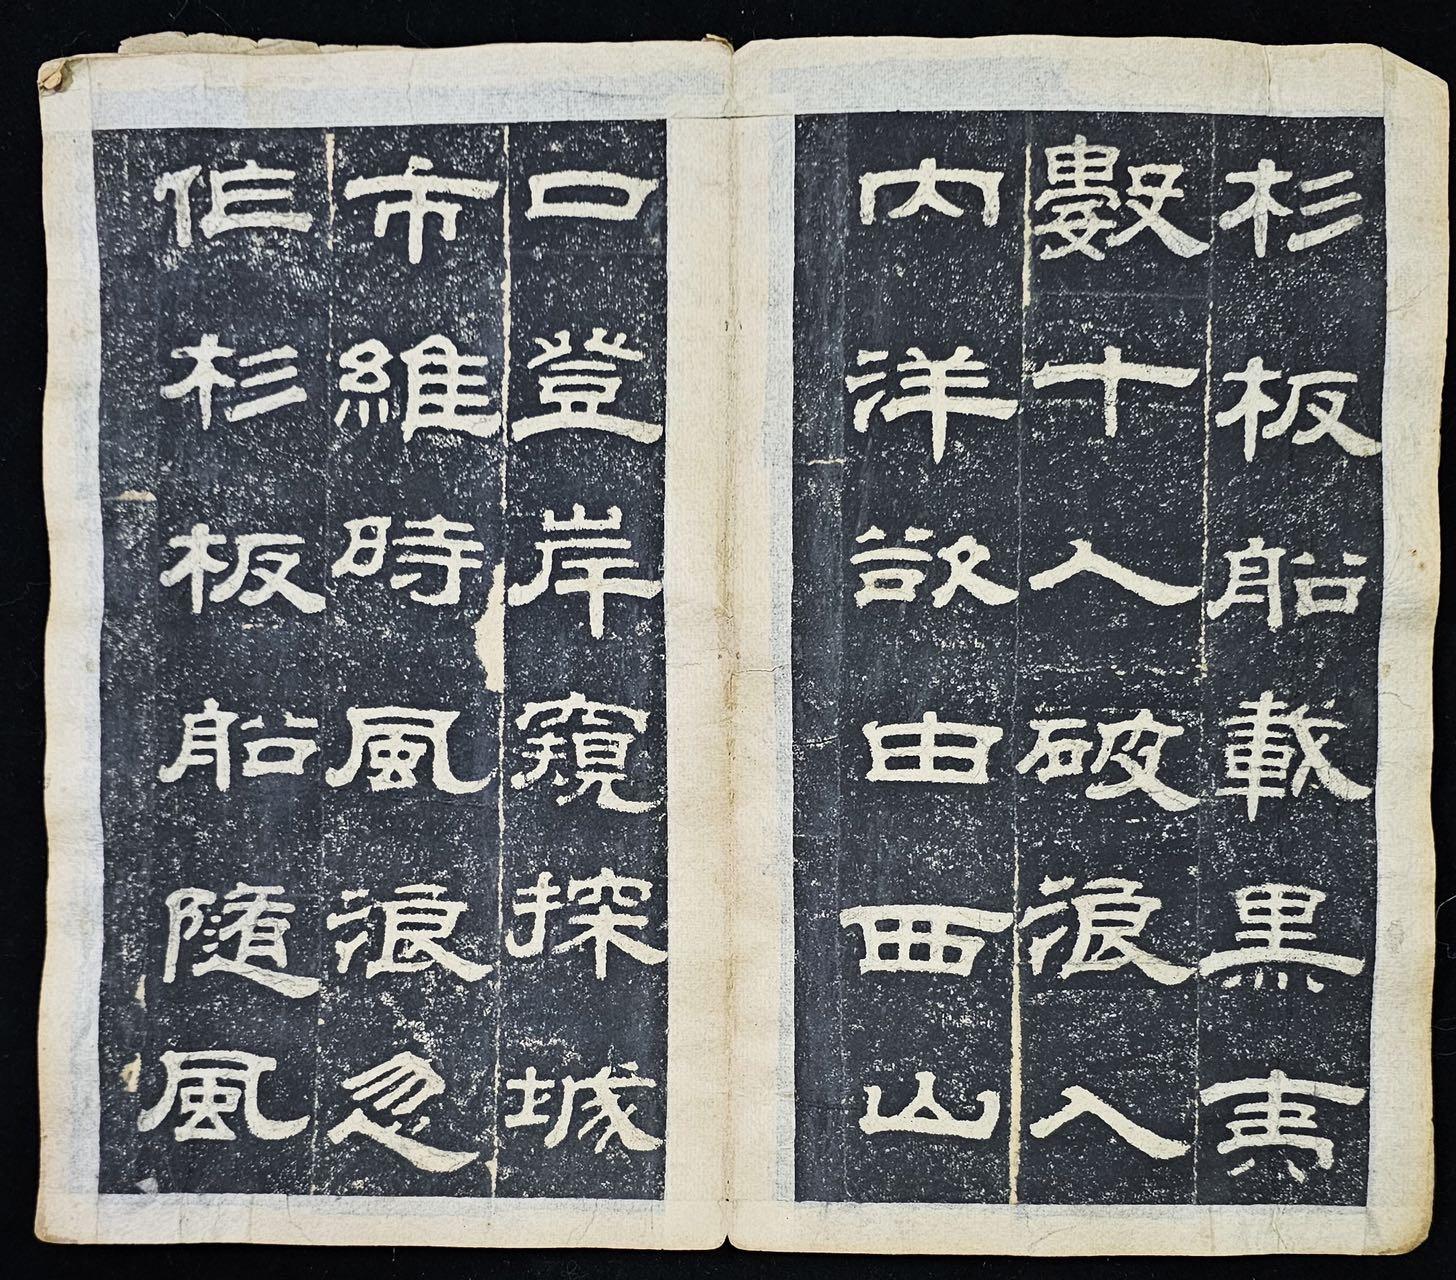 杉板船載黑夷
數十人破浪入
內洋欲由西山
口登岸窺探城
市維時風浪忽
作杉板船隨風